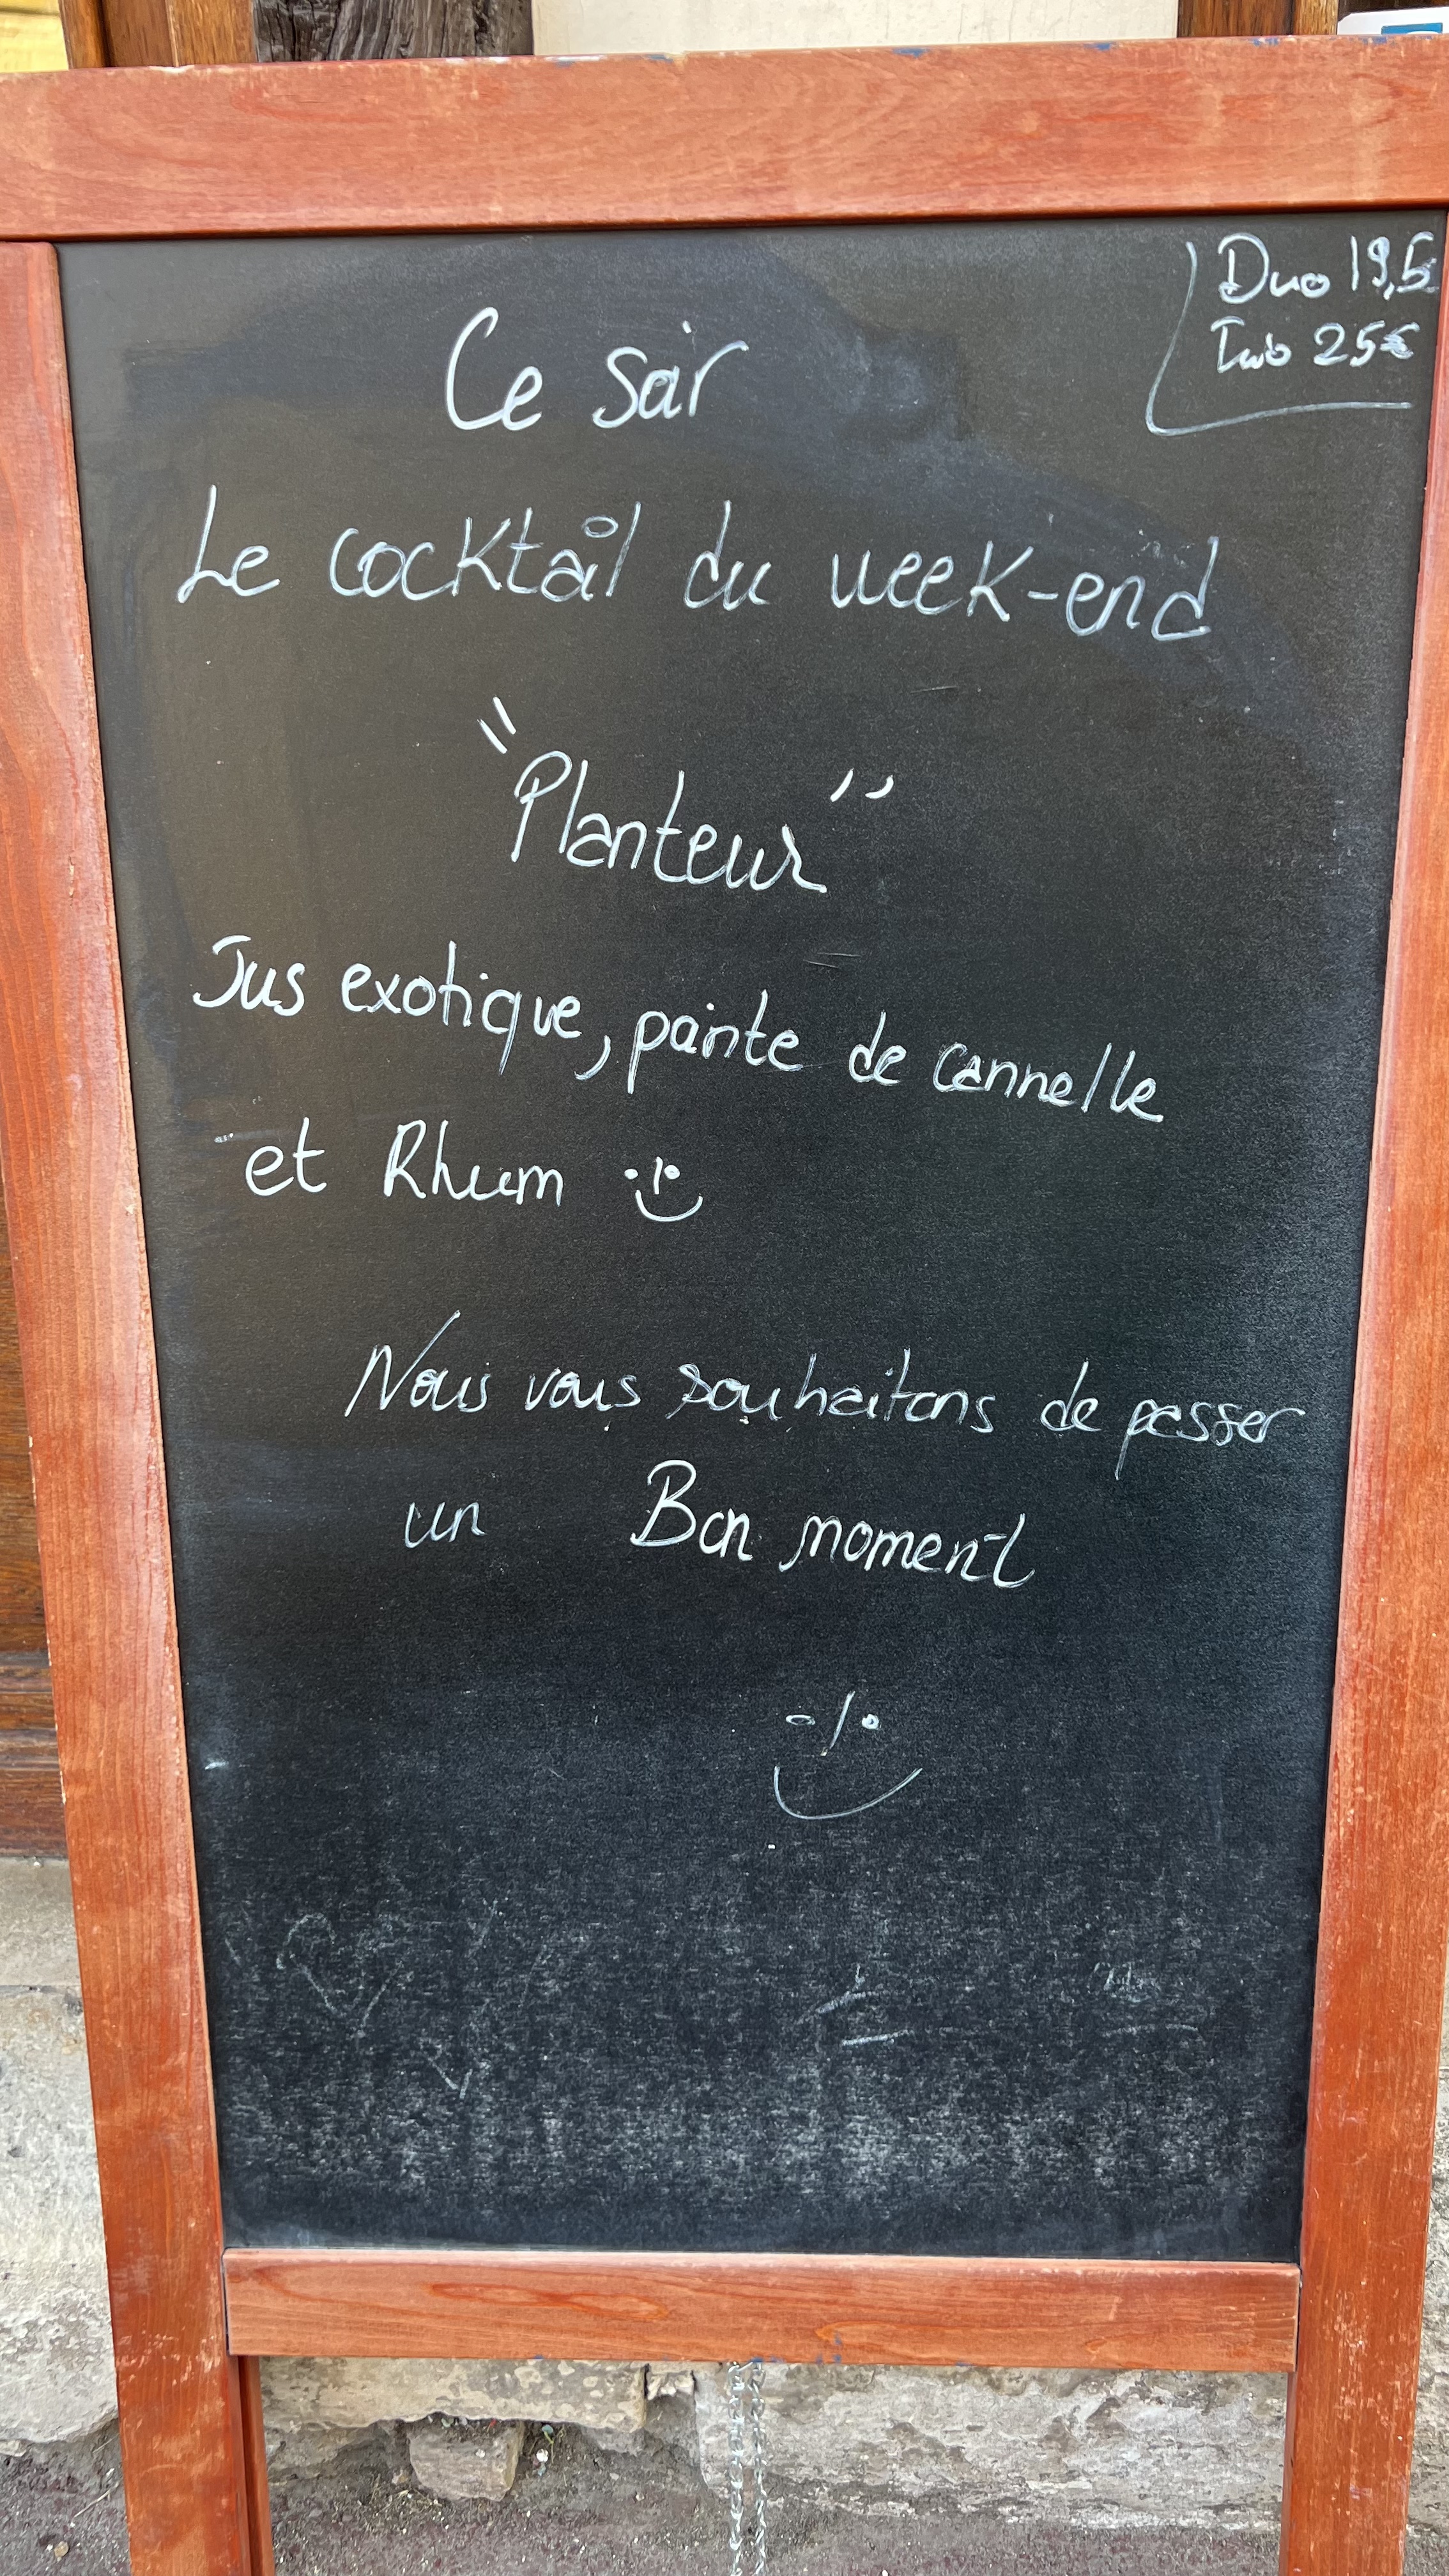 Duo 19,5€
Trio 25€
Ce soir
Le cocktail du week-end
"Planteur"
Jus exotique, pointe de cannelle
et Rhum
Nous vous souhaitons de passer
un Bon moment